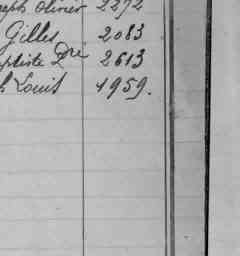 seph Olivier 2272
Gilles 2083
aptiste Dre 2613
h Louis 1959.